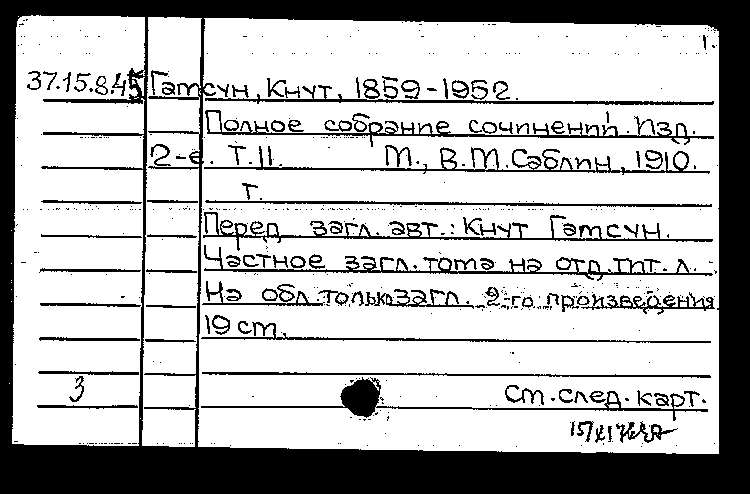 1.
37.15.8.45 Гамсун, Кнут, 1859-1952.
Полное собрание сочинений. Изд.
2-е. Т.11. М., В.М.Саблин, 1910.
т.
Перед загл. авт.: Кнут Гамсун.
Частное загл. тома на отд. тит. л.
На обл. только загл. 2-го произведения
19 cm.
3 См. след. карт.